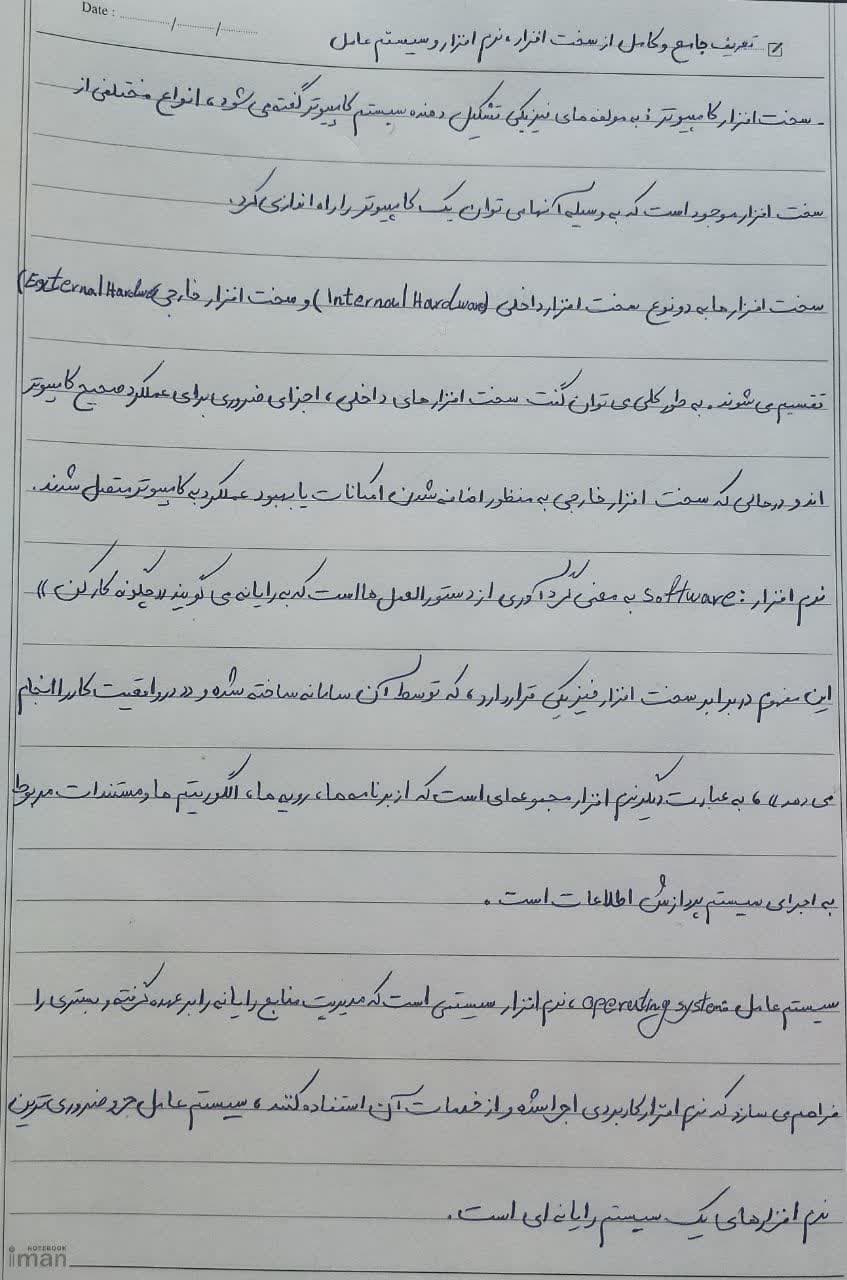 Date : ............/........../..........
تعریف جامع و کامل از سخت افزار ، نرم افزار و سیستم عامل
- سخت افزار کامپیوتر : به مولفه های فیزیکی تشکیل دهنده سیستم کامپیوتر گفته می شود ، انواع مختلفی از
سخت افزار موجود است که به وسیله آنها می توان یک کامپیوتر را راه اندازی کرد.
سخت افزار ها به دو نوع سخت افزار داخلی (Internal Hardware) و سخت افزار خارجی (External Hardware)
تقسیم می شوند . به طور کلی می توان گفت سخت افزار های داخلی ، اجزای ضروری برای عملکرد صحیح کامپیوتر
اند و درحالی که سخت افزار خارجی به منظور اضافه شدن امکانات یا بهبود عملکرد به کامپیوتر متصل شدند .
نرم افزار : Software به معنی گردآوری از دستورالعمل ها است که به رایانه می گویند « چگونه کار کن »
این مفهوم در برابر سخت افزار فیزیکی قرار دارد ، که توسط آن سامانه ساخته شده و در واقعیت کار را انجام
می دهد » ، به عبارت دیگر نرم افزار مجموعه ای است که از برنامه ها ، رویه ها ، الگوریتم ها و مستندات مربوط
به اجرای سیستم پردازش اطلاعات است .
سیستم عامل operating system ، نرم افزار سیستمی است که مدیریت منابع رایانه را بر عهده گرفته و بستری را
فراهم می سازد که نرم افزار کاربردی اجرا شده و از خدمات آن استفاده کنند ، سیستم عامل جزء ضروری ترین
نرم افزارهای یک سیستم رایانه ای است .
NOTEBOOK
iman